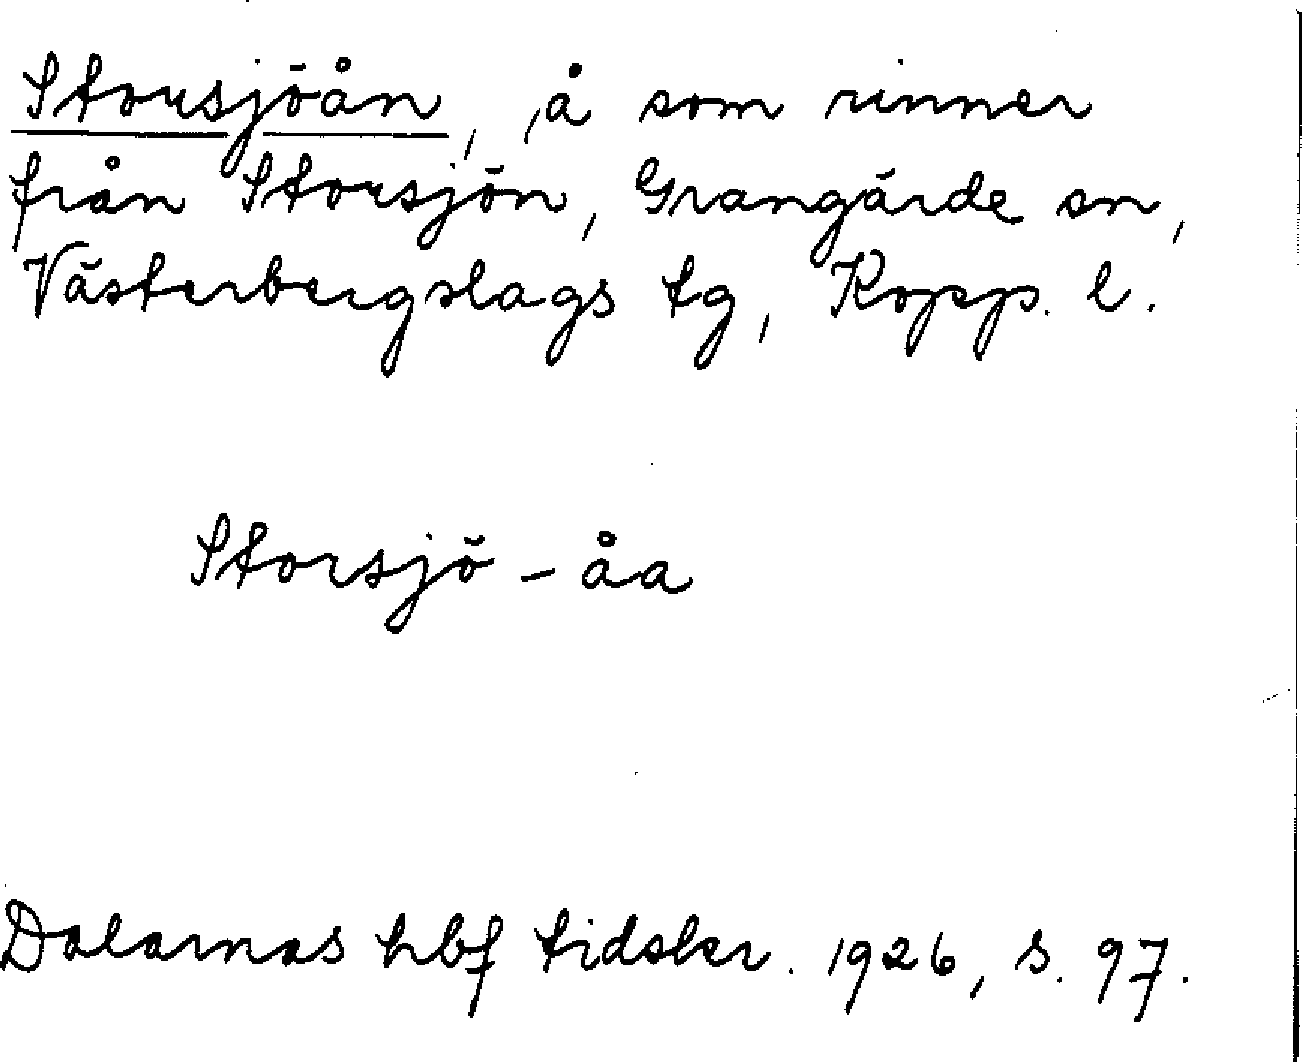 Storsjöån, å som rinner
från Storsjön, Grangärde sn,
Västerbergslags tg, Kopp. l.
Storsjö-åa
Dalarnas hbf tidskr. 1926, s. 97.